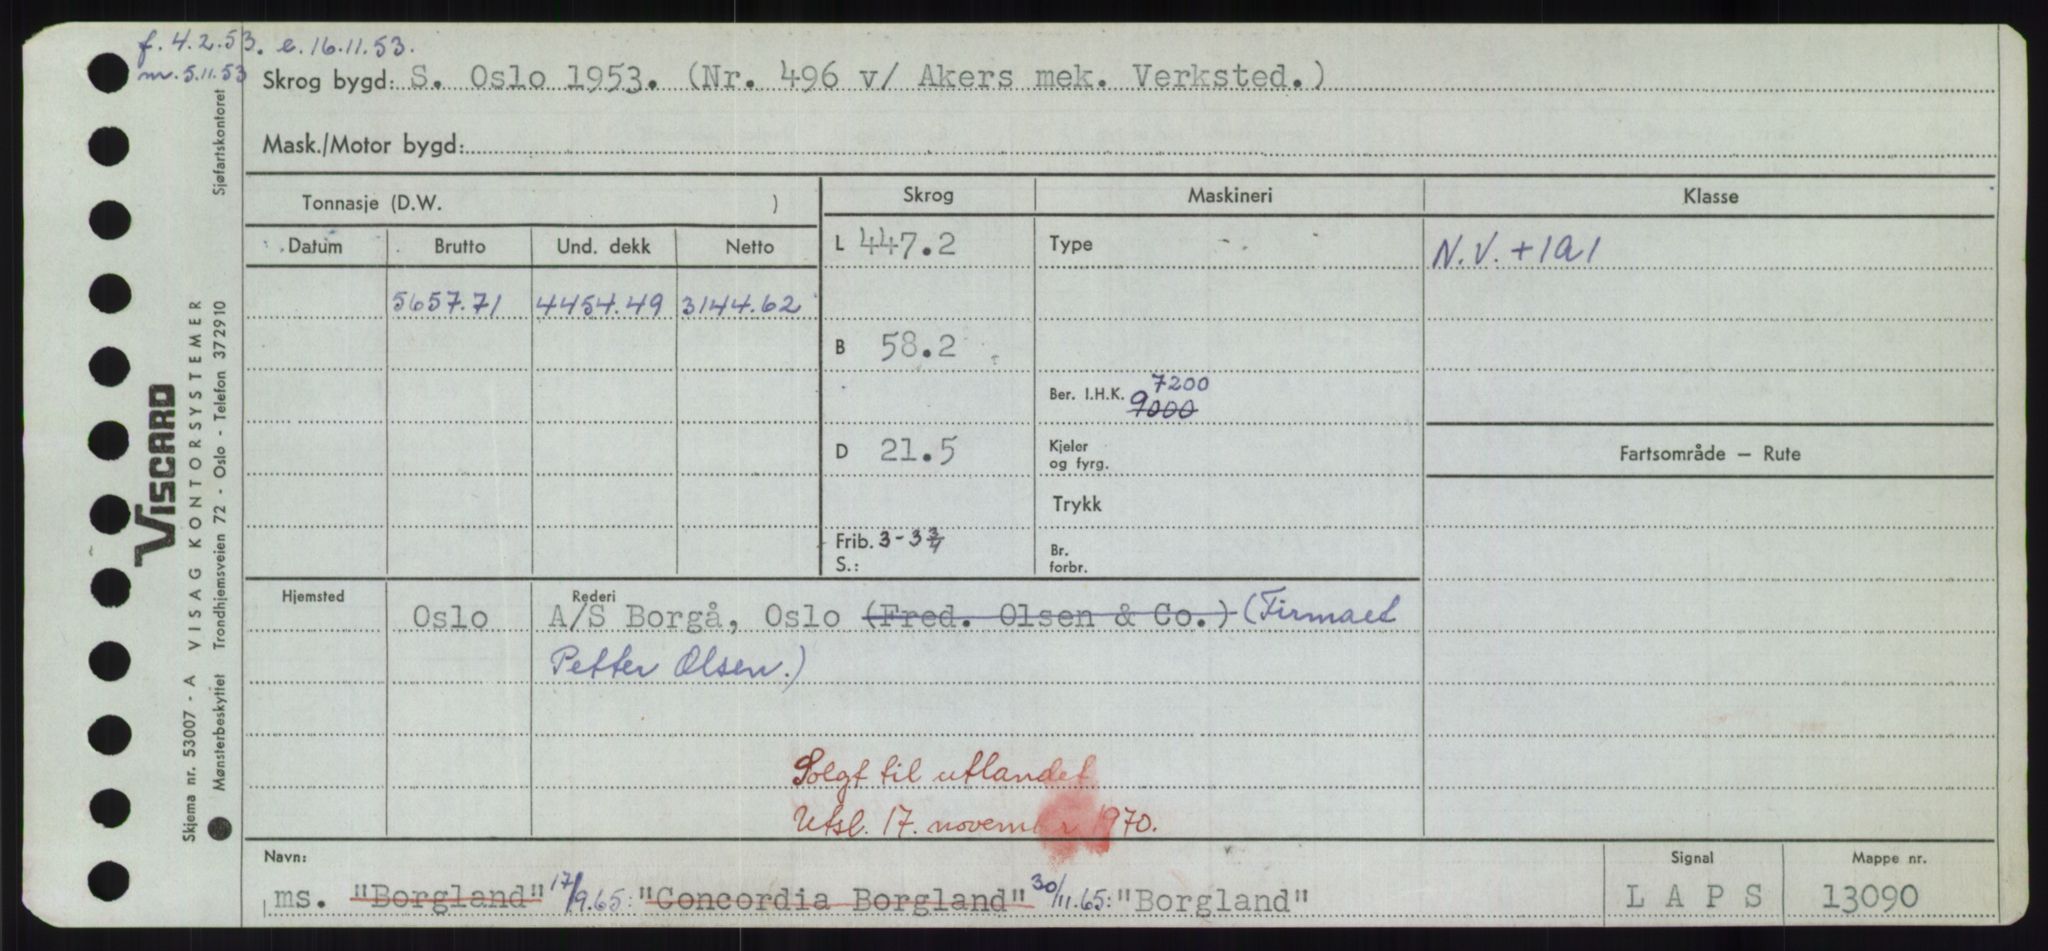 f. 4.2.53. e. 16.11.53.
m. 5.11.53
Skrog bygd: S. Oslo 1953. (Nr. 496 v/ Akers mek. Verksted.)
Mask./Motor bygd:
Tonnasje (D.W. )
Skrog Maskineri Klasse
Datum Brutto Und. dekk Netto
L 447.2 Type N.V. +1A1
5657.71 4454.49 3144.62
B 58.2
7200
Ber. I.H.K. 9000
D 21.5 Kjeler og fyrg. Fartsområde — Rute
Trykk
Frib. 3-3 3/4 Br. forbr.
S.:
Hjemsted Rederi
Oslo A/S Borgå, Oslo (Fred. Olsen & Co.) (Firmaet
Petter Olsen.)
Solgt til utlandet
Utsl. 17. november 1970.
Navn: Signal Mappe nr.
ms. "Borgland" 17/9.65: "Concordia Borgland" 30/11.65: "Borgland" L A P S 13090
VISCARD
VISAG KONTORSYSTEMER
Skjema nr. 53007 - A
Mønsterbeskyttet Trondhjemsveien 72 - Oslo - Telefon 372910 Sjøfartskontoret